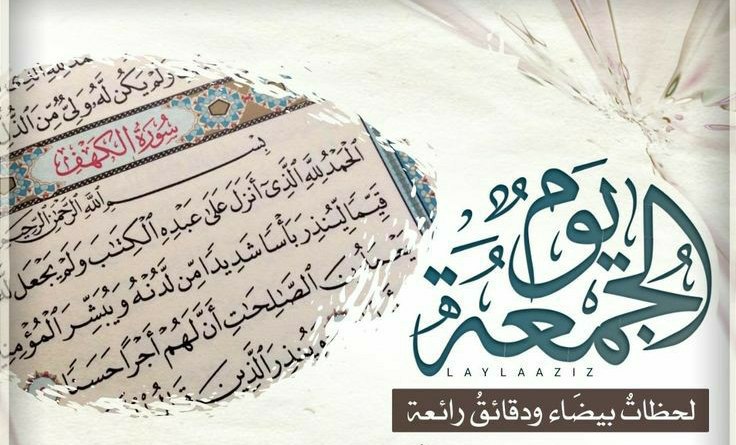 وَلَمْ يَكُن لَّهُۥ وَلِىٌّ مِّنَ ٱلذُّلِّ
سُورَةُ الكَهْفِ
بِسْمِ ٱللَّهِ ٱلرَّحْمَٰنِ ٱلرَّحِيمِ
ٱلْحَمْدُ لِلَّهِ ٱلَّذِىٓ أَنزَلَ عَلَىٰ عَبْدِهِ ٱلْكِتَٰبَ وَلَمْ يَجْعَل
قَيِّمًا لِّيُنذِرَ بَأْسًا شَدِيدًا مِّن لَّدُنْهُ وَيُبَشِّرَ
ٱلصَّٰلِحَٰتِ أَنَّ لَهُمْ أَجْرًا حَسَنًا
وَيُنذِرَ ٱلَّذِينَ
يَوم
الجُمعَة
LAYLAAZIZ
لحظاتٌ بيضَاء ودقائقُ رائعة